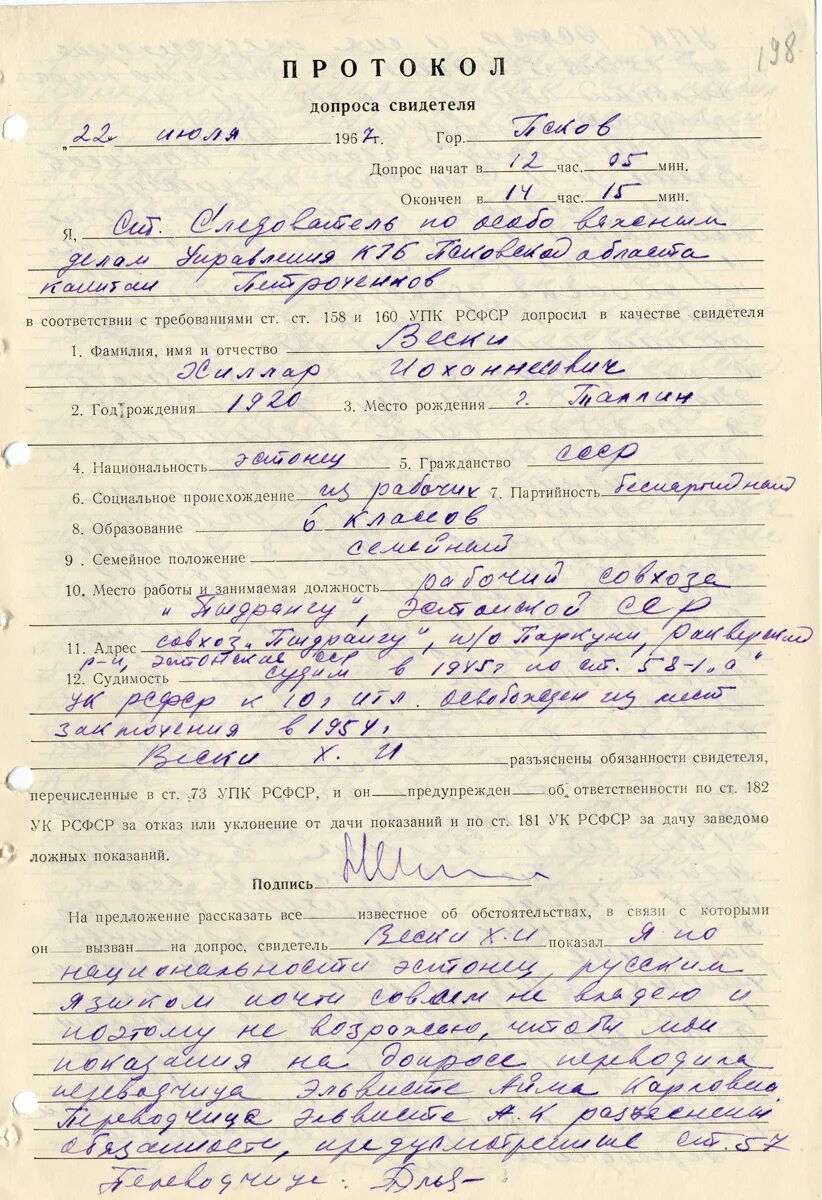 198.
ПРОТОКОЛ
допроса свидетеля
„22 июля 1967г. Гор. Псков
Допрос начат в 12 час. 05 мин.
Окончен в 14 час. 15 мин.
Я, Ст. Следователь по особо важным
делам Управления КГБ Псковской области
капитан Петроченков
в соответствии с требованиями ст. ст. 158 и 160 УПК РСФСР допросил в качестве свидетеля
1. Фамилия, имя и отчество Вески
Хиллар Иоханнесович
2. Год рождения 1920 3. Место рождения г. Таллин
4. Национальность эстонец 5. Гражданство СССР
6. Социальное происхождение из рабочих 7. Партийность беспартийный
8. Образование 6 классов
9. Семейное положение семейный
10. Место работы и занимаемая должность рабочий совхоза
„Пыдрангу", Эстонской ССР
11. Адрес совхоз „Пыдрангу", п/о Паркуни, Раквереский
р-н, Эстонские ССР
12. Судимость судим в 1945г по ст. 58-1„а"
УК РСФСР к 10г ИТЛ. освобожден из мест
заключения в 1954г
Вески Х. И разъяснены обязанности свидетеля,
перечисленные в ст. 73 УПК РСФСР, и он предупрежден об ответственности по ст. 182
УК РСФСР за отказ или уклонение от дачи показаний и по ст. 181 УК РСФСР за дачу заведомо
ложных показаний.
Подпись
На предложение рассказать все известное об обстоятельствах, в связи с которыми
он вызван на допрос, свидетель Вески Х.И показал Я по
национальности эстонец, русским
языком почти совсем не владею и
поэтому не возражаю, чтобы мои
показания на допросе переводила
переводчица Эльвисте Айма Карловна.
Переводчице Эльвисте А.К разъяснены
обязанности, предусмотренные ст. 57
Переводчица: